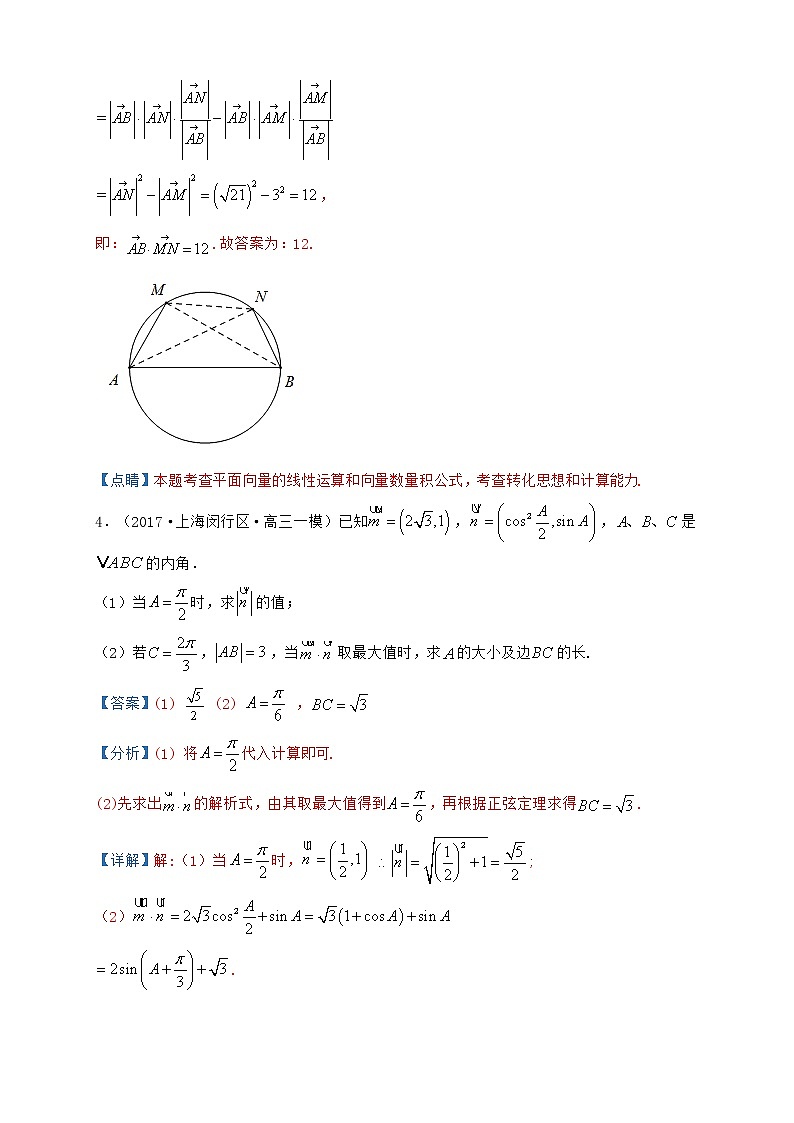 = |AB→|·|AN→|·|AN→|/|AB→| − |AB→|·|AM→|·|AM→|/|AB→|
= |AN→|² − |AM→|² = (√21)² − 3² = 12，
即：AB→·MN→ = 12.故答案为：12.
M
N
A
B
【点睛】本题考查平面向量的线性运算和向量数量积公式，考查转化思想和计算能力.
4.（2017·上海闵行区·高三一模）已知m = (2√3,1)，n = (cos² A/2, sin A)，A、B、C 是
VABC 的内角．
（1）当 A = π/2 时，求|n|的值；
（2）若 C = 2π/3，|AB| = 3，当 m·n 取最大值时，求 A 的大小及边 BC 的长.
【答案】(1) √5/2 (2) A = π/6 ，BC = √3
【分析】(1) 将 A = π/2 代入计算即可.
(2)先求出 m·n 的解析式，由其取最大值得到 A = π/6，再根据正弦定理求得 BC = √3．
【详解】解：（1）当 A = π/2 时，n = (1/2,1) ∴ |n| = √((1/2)² + 1) = √5/2；
（2）m·n = 2√3cos² A/2 + sin A = √3(1+cos A) + sin A
= 2sin(A + π/3) + √3．